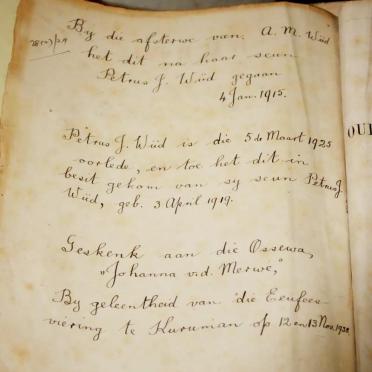 By die afsterwe van: A. M. Wüd
het dit na haar seun
Petrus J. Wüd gegaan
4 Jan. 1915.
Petrus J. Wüd is die 5 de Maart 1925
oorlede, en toe het dit in
besit gekom van sy seun Petrus J.
Wüd, geb. 3 April 1919.
Geskenk aan die Ossewa,
"Johanna v.d. Merwe,"
By geleentheid van die Eeufees-
viering te Kuruman op 12 en 13 Nov. 1938
OU